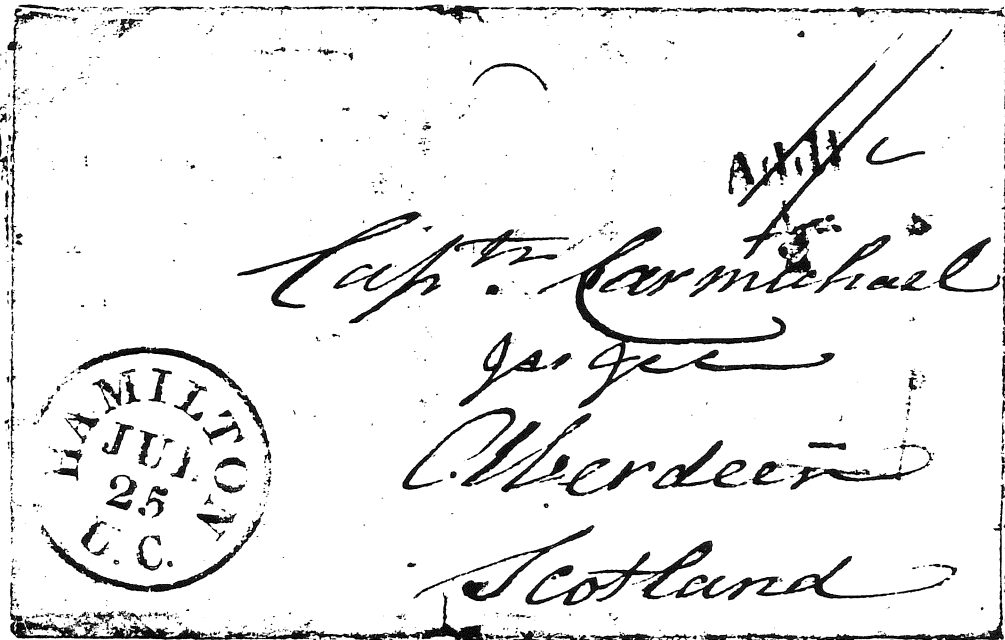 Captn. Carmichael
Aberdeen
Scotland
HAMILTON
JUL
25
U.C.